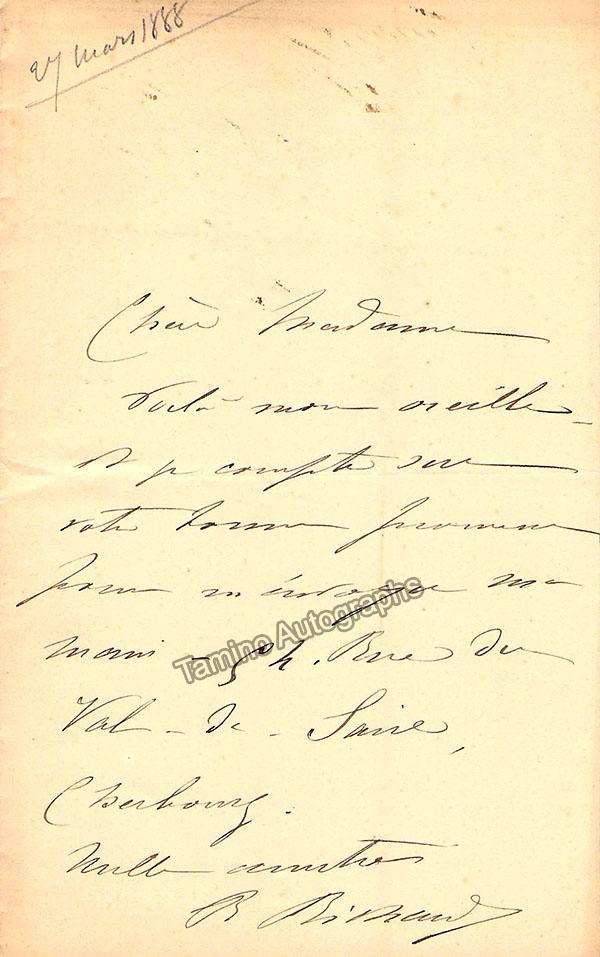 27 mars 1888
Chère Madame
Voilà mon oreille
et je compte sur
votre bonne promesse
pour m'envoyer ma
main - 54. Rue du
Val-de-Saire,
Cherbourg.
Mille amitiés
R Richard
Tamino Autographs